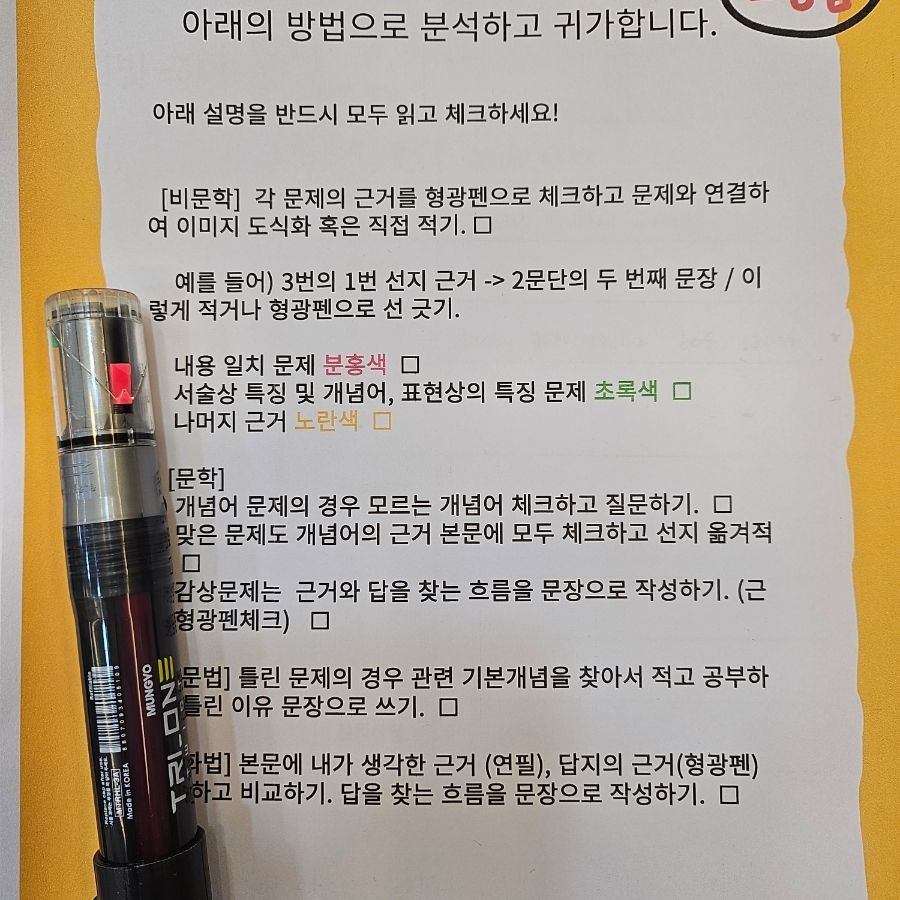 아래의 방법으로 분석하고 귀가합니다.
아래 설명을 반드시 모두 읽고 체크하세요!
[비문학] 각 문제의 근거를 형광펜으로 체크하고 문제와 연결하
여 이미지 도식화 혹은 직접 적기. □
예를 들어) 3번의 1번 선지 근거 -> 2문단의 두 번째 문장 / 이
렇게 적거나 형광펜으로 선 긋기.
내용 일치 문제 분홍색 □
서술상 특징 및 개념어, 표현상의 특징 문제 초록색 □
나머지 근거 노란색 □
[문학]
개념어 문제의 경우 모르는 개념어 체크하고 질문하기. □
맞은 문제도 개념어의 근거 본문에 모두 체크하고 선지 옮겨적
□
감상문제는 근거와 답을 찾는 흐름을 문장으로 작성하기. (근
형광펜체크) □
문법] 틀린 문제의 경우 관련 기본개념을 찾아서 적고 공부하
틀린 이유 문장으로 쓰기. □
법] 본문에 내가 생각한 근거 (연필), 답지의 근거(형광펜)
하고 비교하기. 답을 찾는 흐름을 문장으로 작성하기. □
MUNGYO
TRI-ONE
MTRHL-3A
Made in KOREA